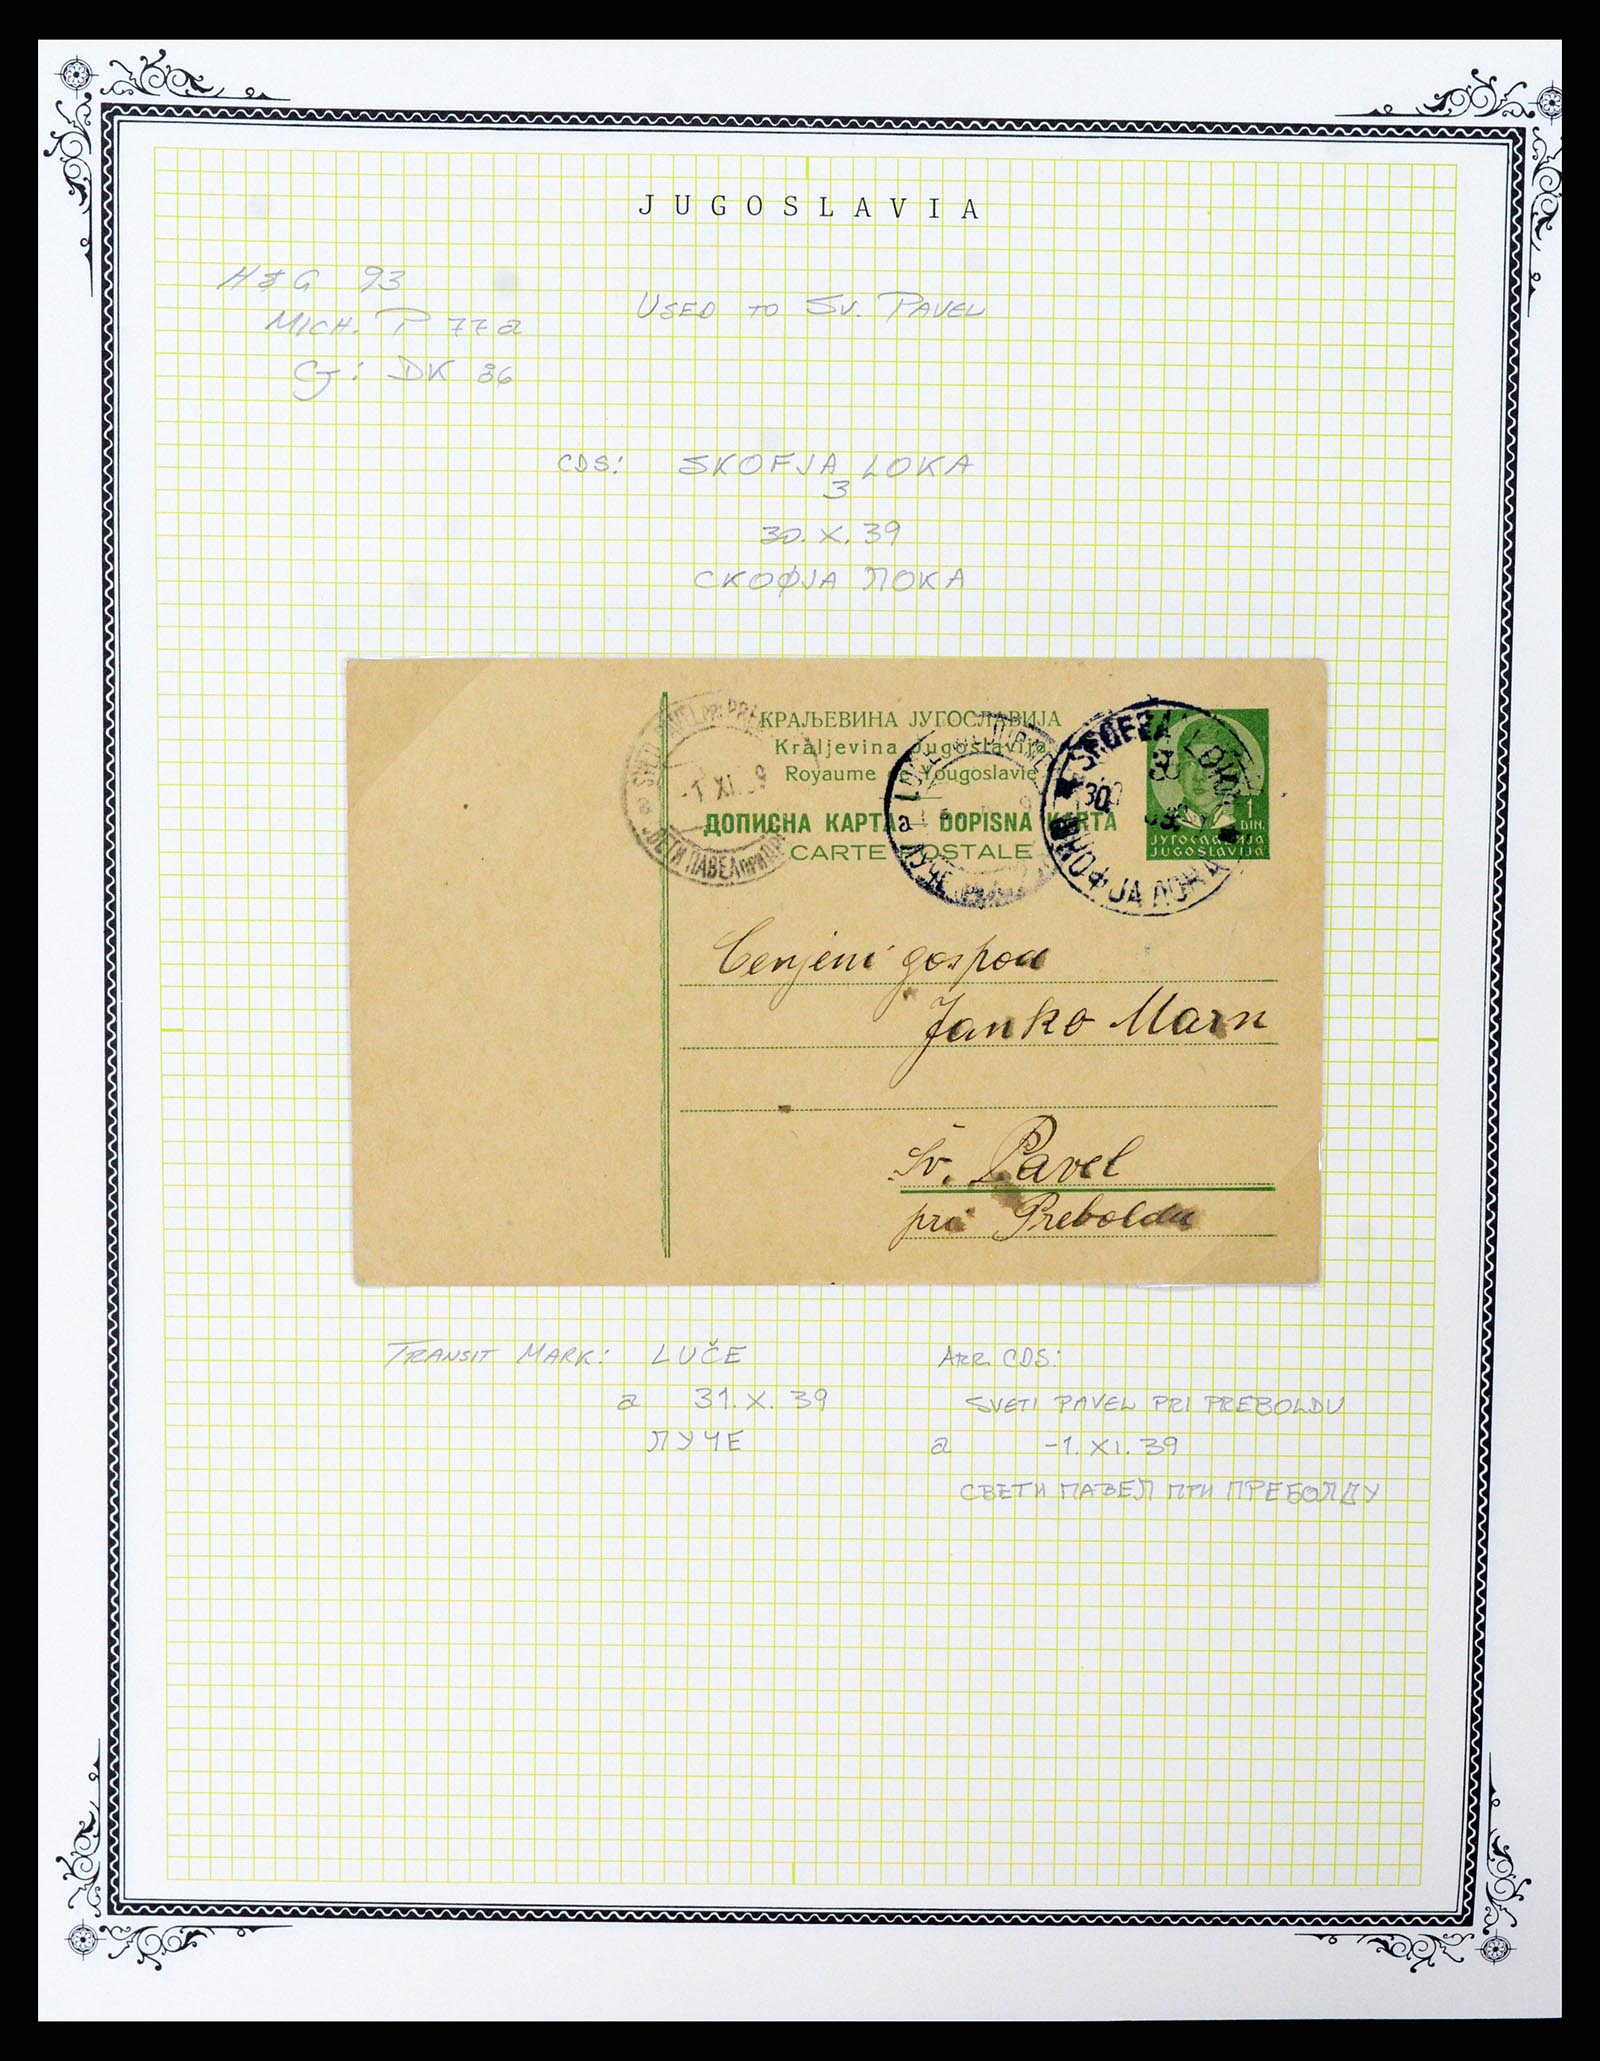 JUGOSLAVIA
H & G 93
MICH. P 77a
CJ: DK 36
USED TO SV. PAVEL
CDS: SKOFJA LOKA
3
30. X. 39
СКОФЈА ЛОКА
КРАЉЕВИНА ЈУГОСЛАВИЈА
Kraljevina Jugoslavija
Royaume Yougoslavie
ДОПИСНА КАРТА DOPISNA KARTA
CARTE POSTALE
-1 XI 39
a
СВЕТИ ПАВЕЛ ПРИ
a
ЛУЧЕ
LOKA
3
30
СКОФЈА ЛОКА
1
DIN.
ЈУГОСЛАВИЈА
JUGOSLAVIJA
Cenjeni gospod
Janko Marn
Sv. Pavel
pri Preboldu
TRANSIT MARK: LUČE
a 31. X. 39
ЛУЧЕ
ARR. CDS:
SVETI PAVEL PRI PREBOLDU
a -1. XI. 39
СВЕТИ ПАВЕЛ ПРИ ПРЕБОЛДУ